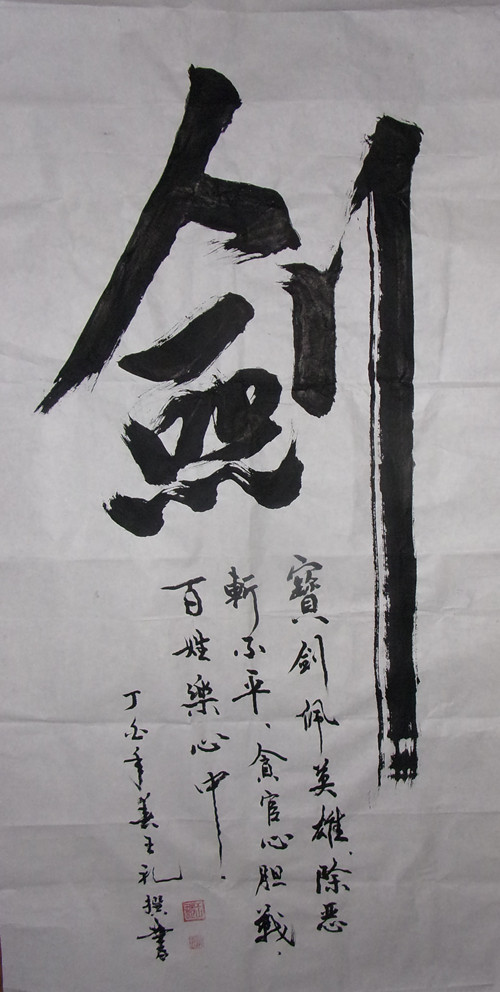 劍
寶劍佩英雄、除惡
斬不平、貪官心胆戰、
百姓樂心中。
丁酉年義王礼撰書